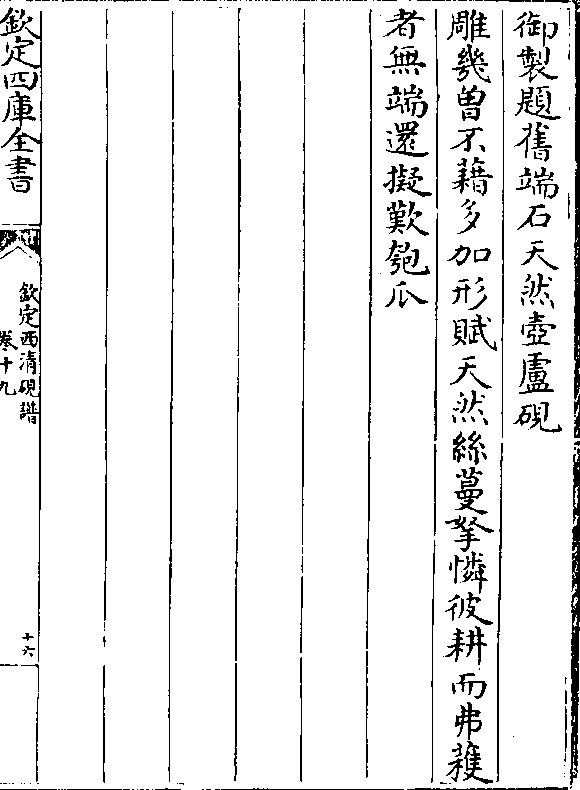 御製題舊端石天然壺盧硯
雕幾曽不藉多加形賦天然絲蔓拏憐彼耕而弗穫
者無端還擬歎匏瓜
欽定四庫全書
欽定西清硯譜
卷十九
十六